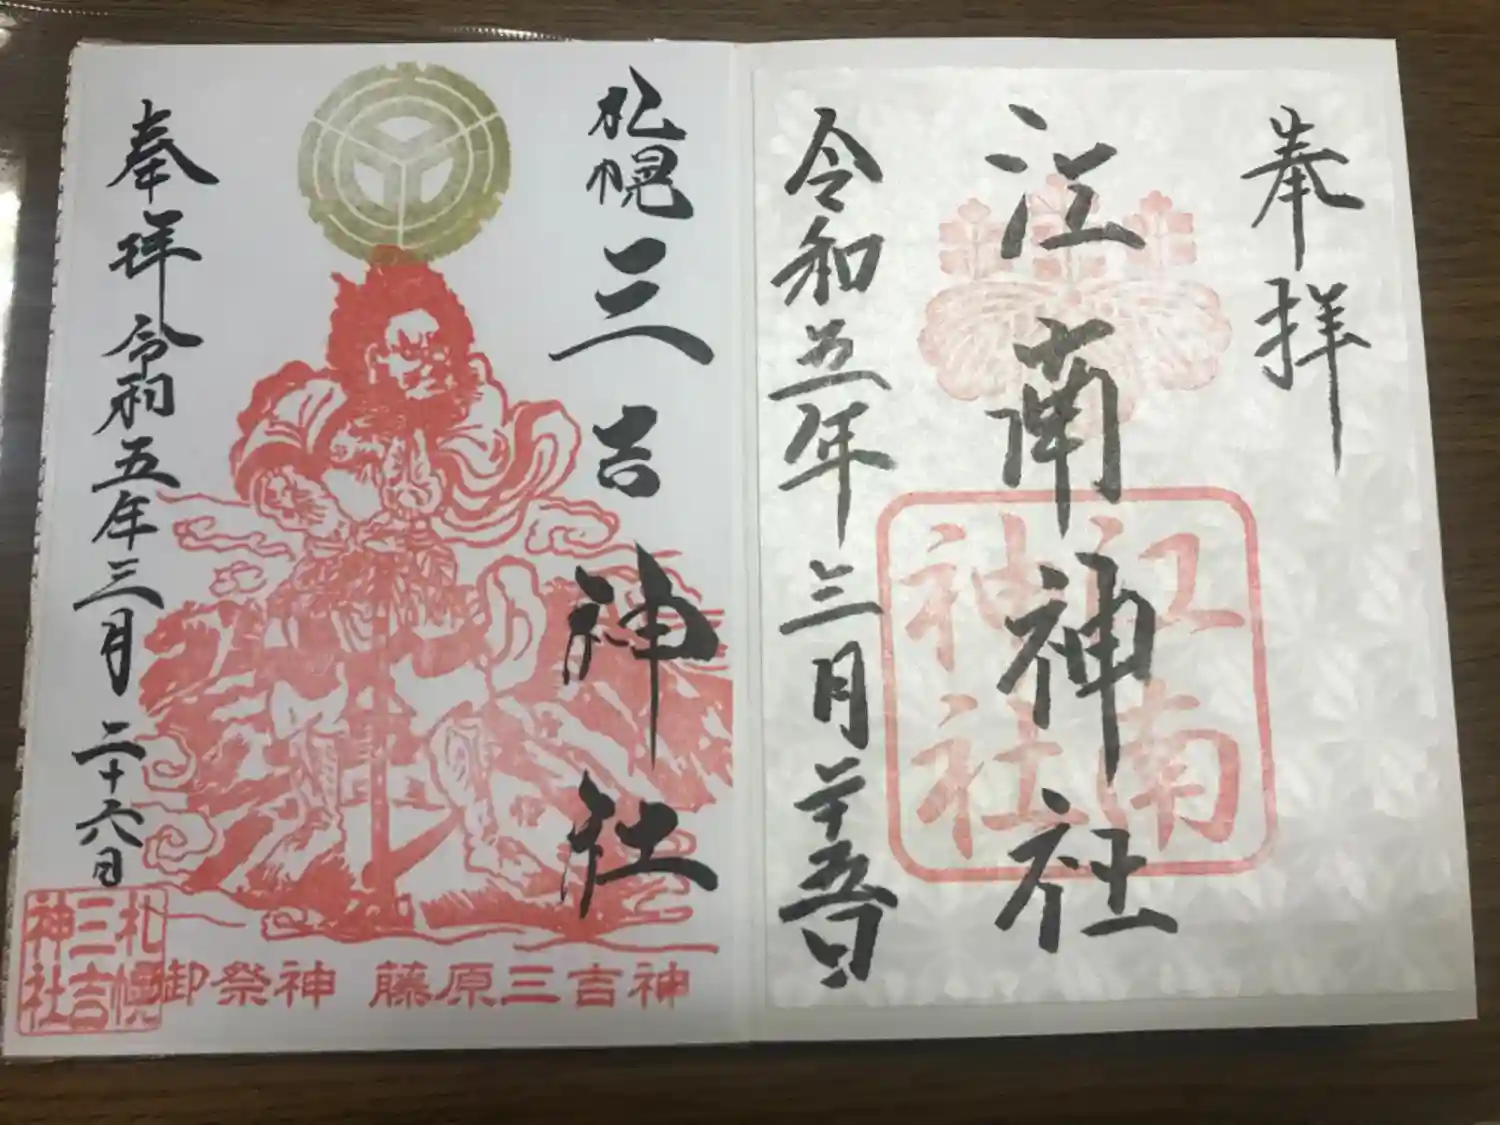 奉拝
江南神社
江南
神社
令和五年三月二十五日
札幌三吉神社
奉拝 令和五年三月二十六日
札幌
三吉
神社
御祭神 藤原三吉神